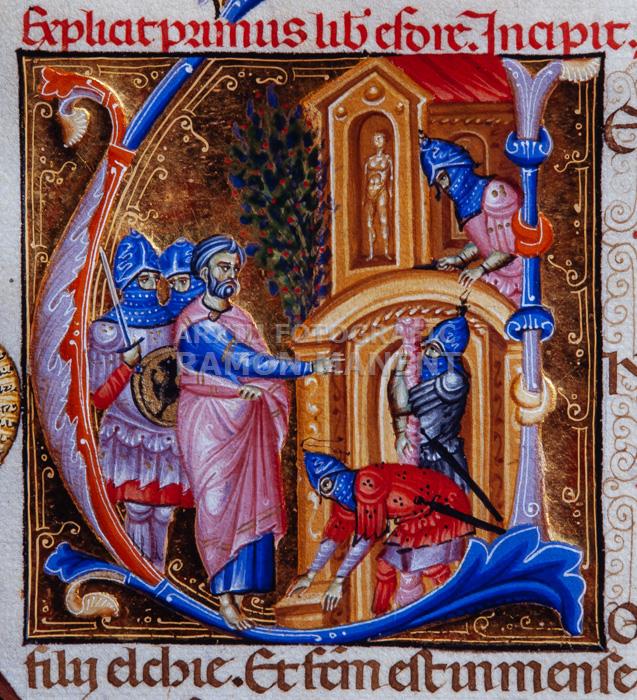 Explicit primus lib' esdre. Incipit
ARXIU FOTOGRÀFIC
RAMON MANENT
filij elchie. Et fcm est in mense